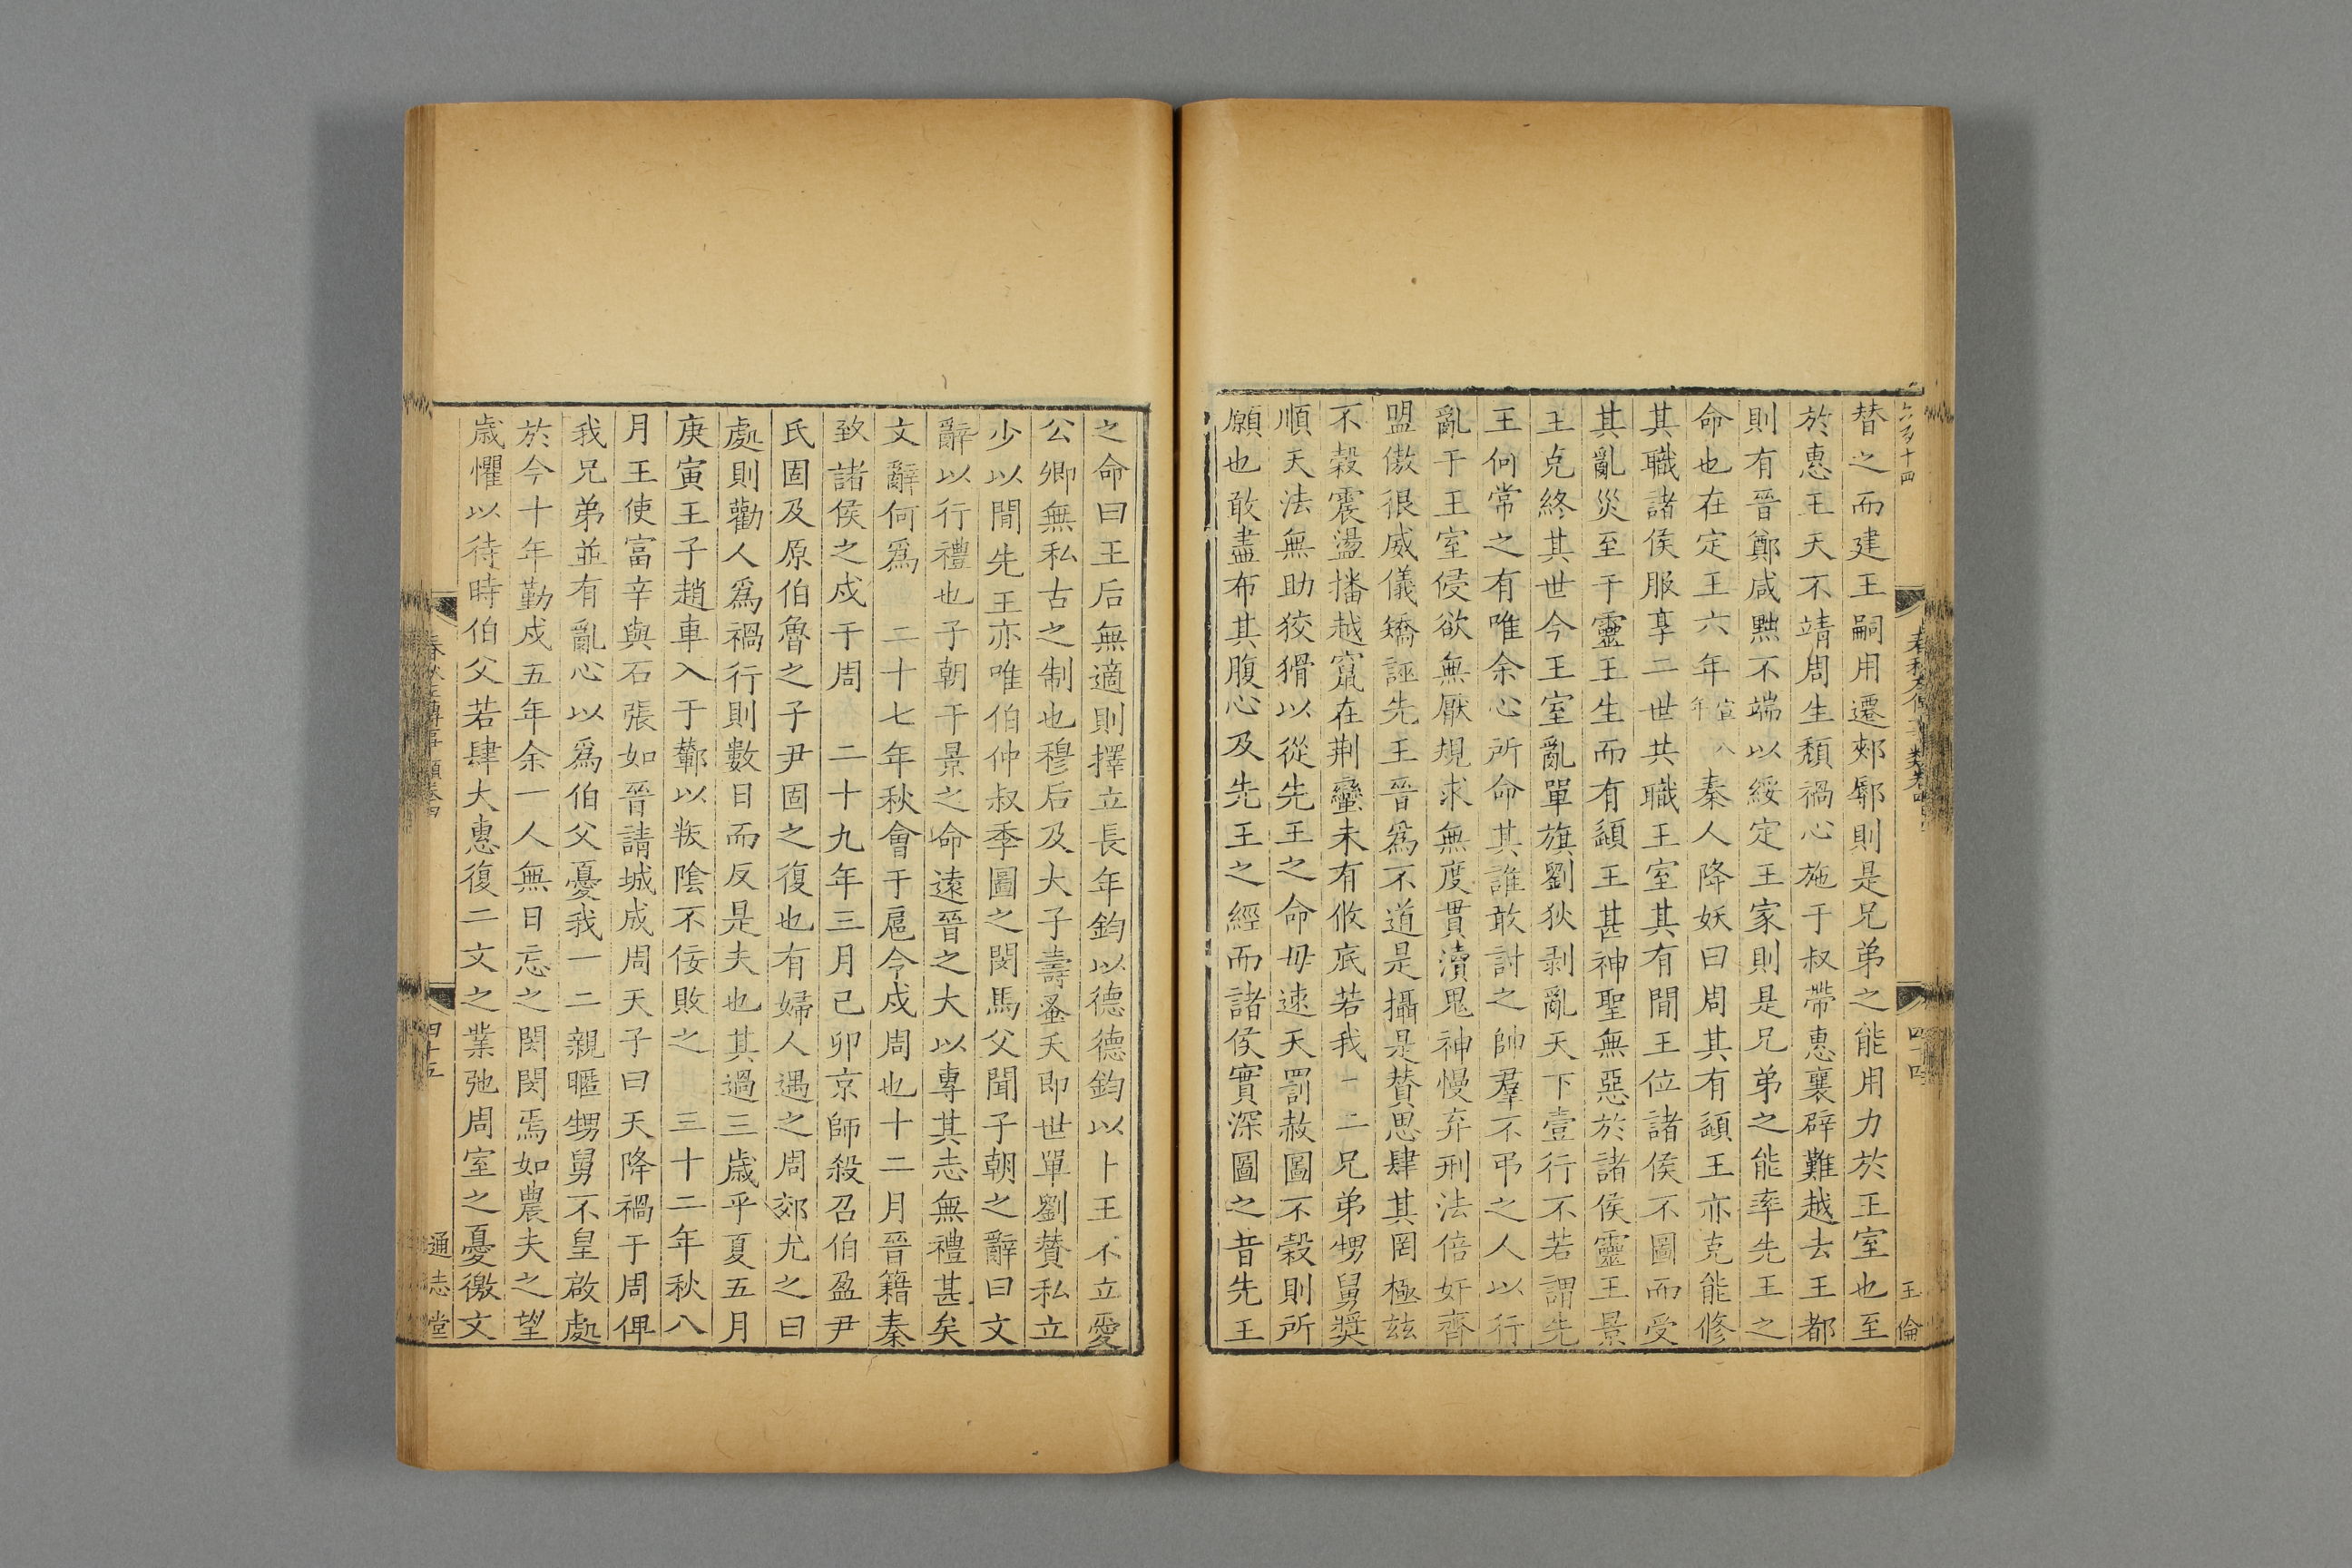 替之而建王嗣用遷郟鄏則是兄弟之能用力於王室也至
於惠王天不靖周生頽禍心施于叔帶惠襄辟難越去王都
則有晉鄭咸黜不端以綏定王家則是兄弟之能率先王之
命也在定王六年宣八年秦人降妖曰周其有頾王亦克能修
其職諸侯服享二世共職王室其有間王位諸侯不圖而受
其亂災至于靈王生而有頾王甚神聖無惡於諸侯靈王景
王克終其世今王室亂單旗劉狄剥亂天下壹行不若謂先
王何常之有唯余心所命其誰敢討之帥羣不弔之人以行
亂于王室侵欲無厭規求無度貫瀆鬼神慢弃刑法倍奸齊
盟傲很威儀矯誣先王晉爲不道是攝是賛思肆其罔極兹
不榖震盪播越竄在荆蠻未有攸底若我一二兄弟甥舅奨
順天法無助狡猾以從先王之命毋速天罰赦圖不榖則所
願也敢盡布其腹心及先王之經而諸侯實深圖之昔先王
春秋左傳事類卷四
四十四
王倫
之命曰王后無適則擇立長年鈞以德德鈞以卜王不立愛
公卿無私古之制也穆后及大子壽蚤夭即世單劉賛私立
少以間先王亦唯伯仲叔季圖之閔馬父聞子朝之辭曰文
辭以行禮也子朝干景之命遠晉之大以專其志無禮甚矣
文辭何爲 二十七年秋會于扈令戍周也十二月晉籍秦
致諸侯之戍于周 二十九年三月己卯京師殺召伯盈尹
氏固及原伯魯之子尹固之復也有婦人遇之周郊尤之曰
處則勸人爲禍行則數日而反是夫也其過三歲乎夏五月
庚寅王子趙車入于鄻以叛陰不佞敗之 三十二年秋八
月王使富辛與石張如晉請城成周天子曰天降禍于周俾
我兄弟並有亂心以爲伯父憂我一二親暱甥舅不皇啟處
於今十年勤戍五年余一人無日忘之閔閔焉如農夫之望
歲懼以待時伯父若肆大惠復二文之業弛周室之憂徼文
四十五
通志堂